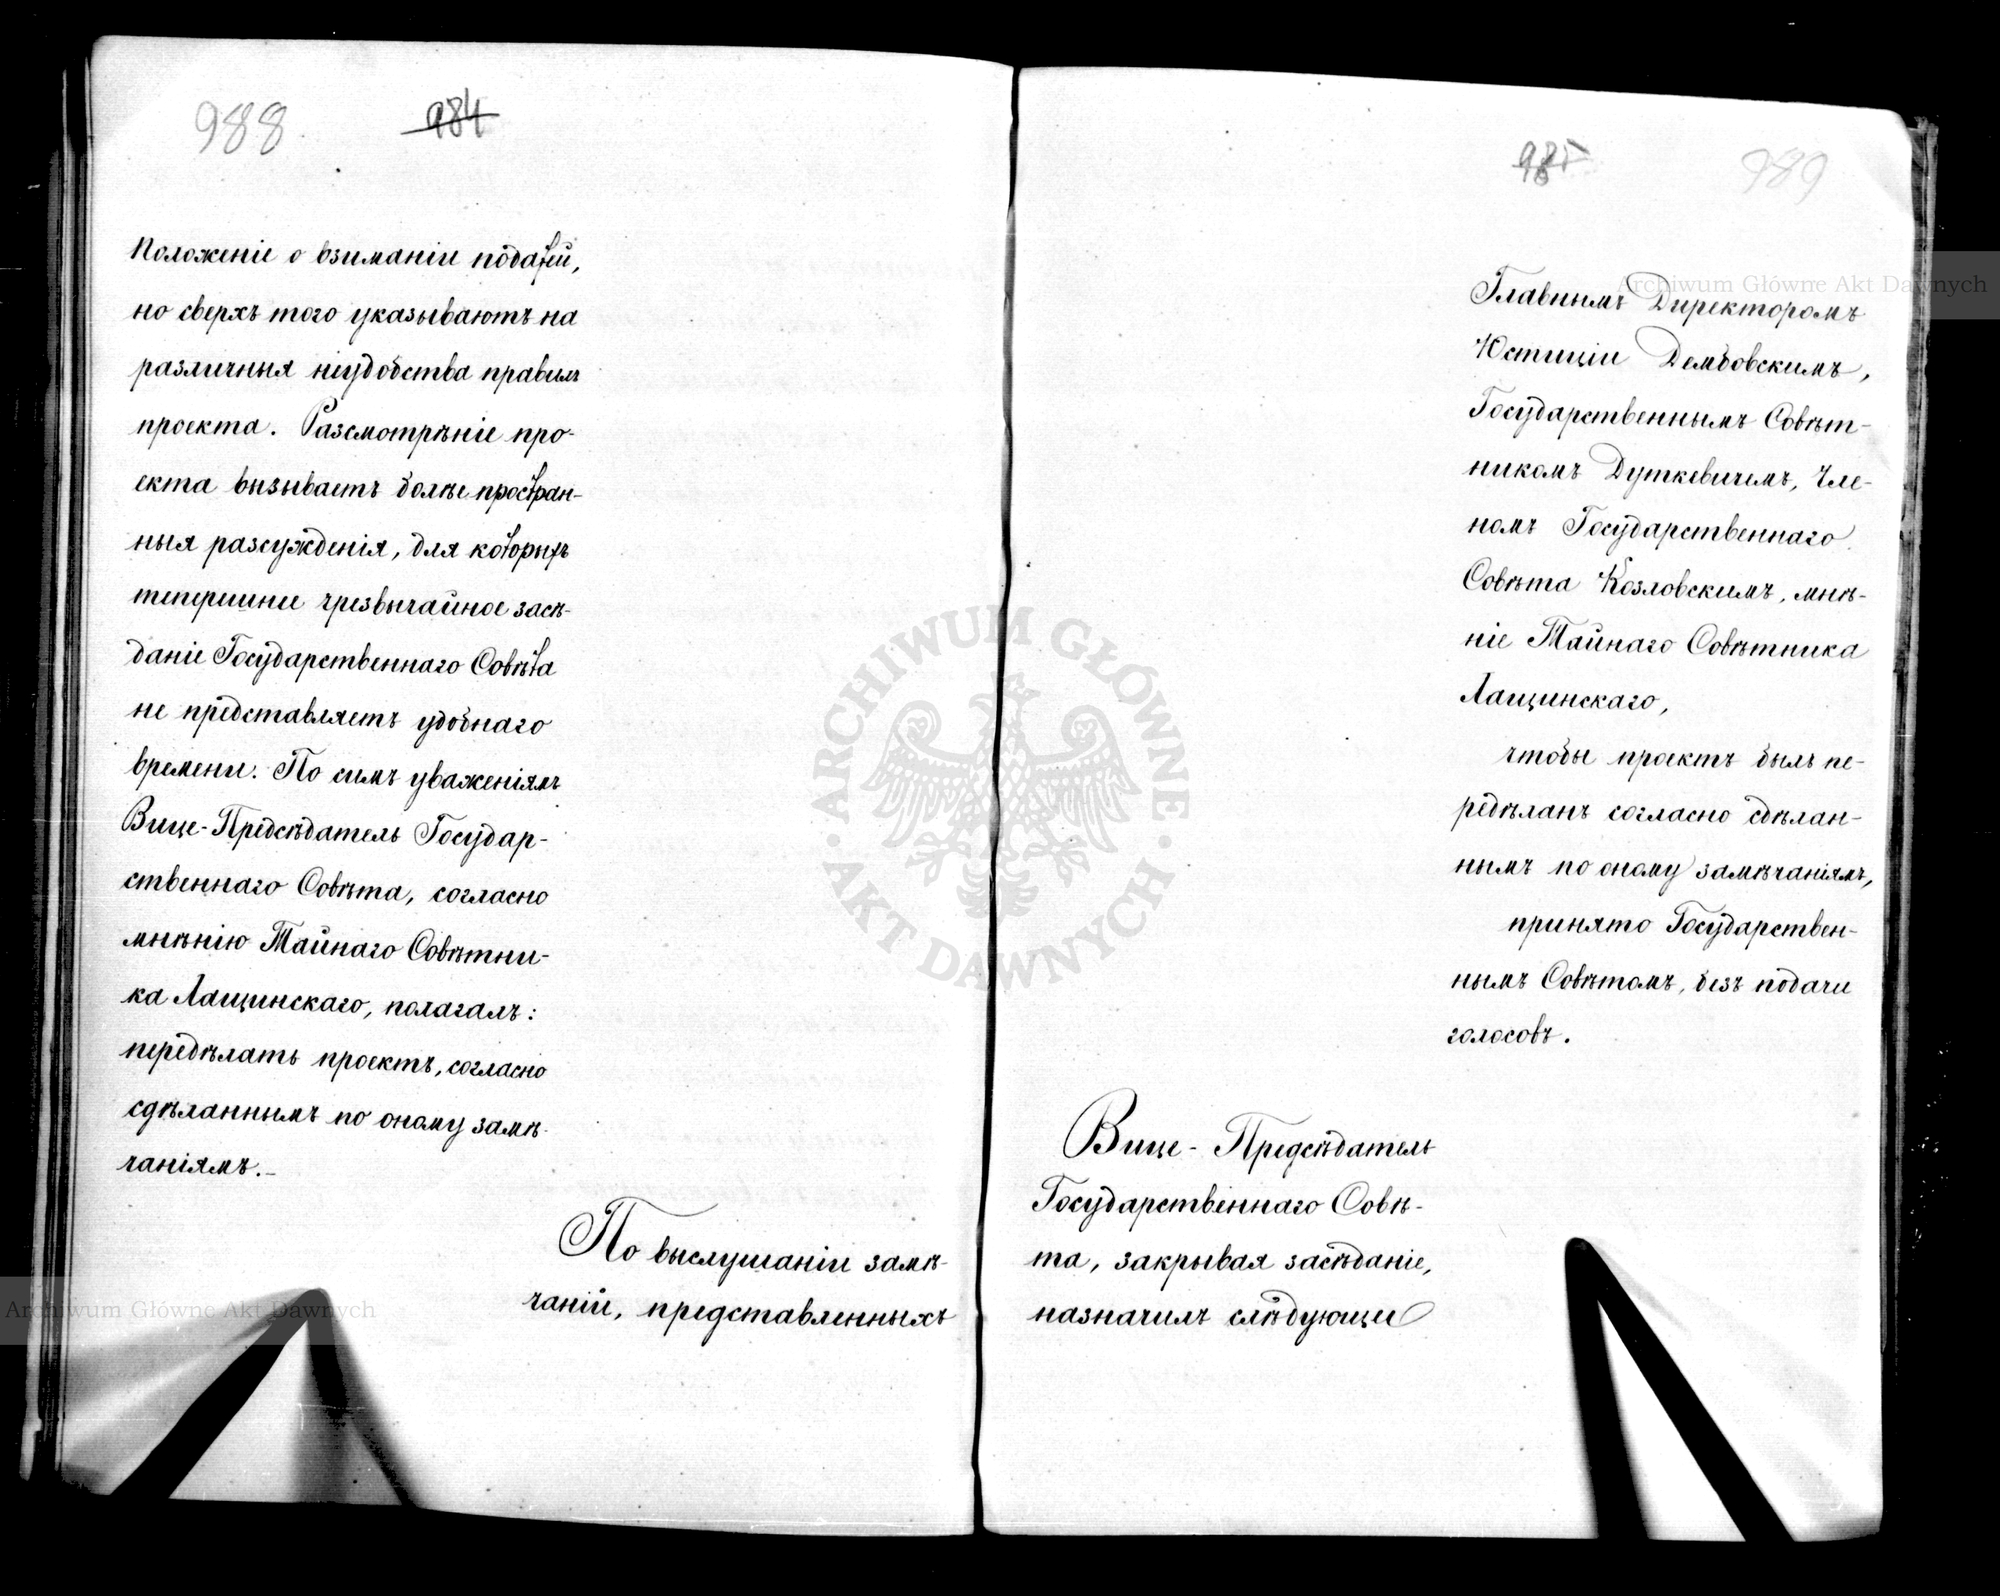 988 984
Положеніе о взиманіи податей,
но сверхъ того указываютъ на
различныя неудобства правилъ
проекта. Разсмотрѣніе про-
екта вызываетъ болѣе простран-
ныя разсужденія, для которыхъ
теперешнее чрезвычайное засѣ-
даніе Государственнаго Совѣта
не представляетъ удобнаго
времени. По симъ уваженіямъ
Вице-Предсѣдатель Государ-
ственнаго Совѣта, согласно
мнѣнію Тайнаго Совѣтни-
ка Лащинскаго, полагалъ:
передѣлать проектъ, согласно
сдѣланнымъ по оному замѣ-
чаніямъ.-
По выслушаніи замѣ-
чаній, представленныхъ
985 989
Главнымъ Директоромъ
Юстиціи Дембовскимъ,
Государственнымъ Совѣт-
никомъ Дуткевичемъ, Чле-
номъ Государственнаго
Совѣта Козловскимъ, мнѣ-
ніе Тайнаго Совѣтника
Лащинскаго,
чтобы проектъ былъ пе-
редѣланъ согласно сдѣлан-
нымъ по оному замѣчаніямъ,
принято Государствен-
нымъ Совѣтомъ, безъ подачи
голосовъ.
Вице-Предсѣдатель
Государственнаго Совѣ-
та, закрывая засѣданіе,
назначилъ слѣдующее
Archiwum Główne Akt Dawnych
Archiwum Główne Akt Dawnych
ARCHIWUM GŁÓWNE
AKT DAWNYCH